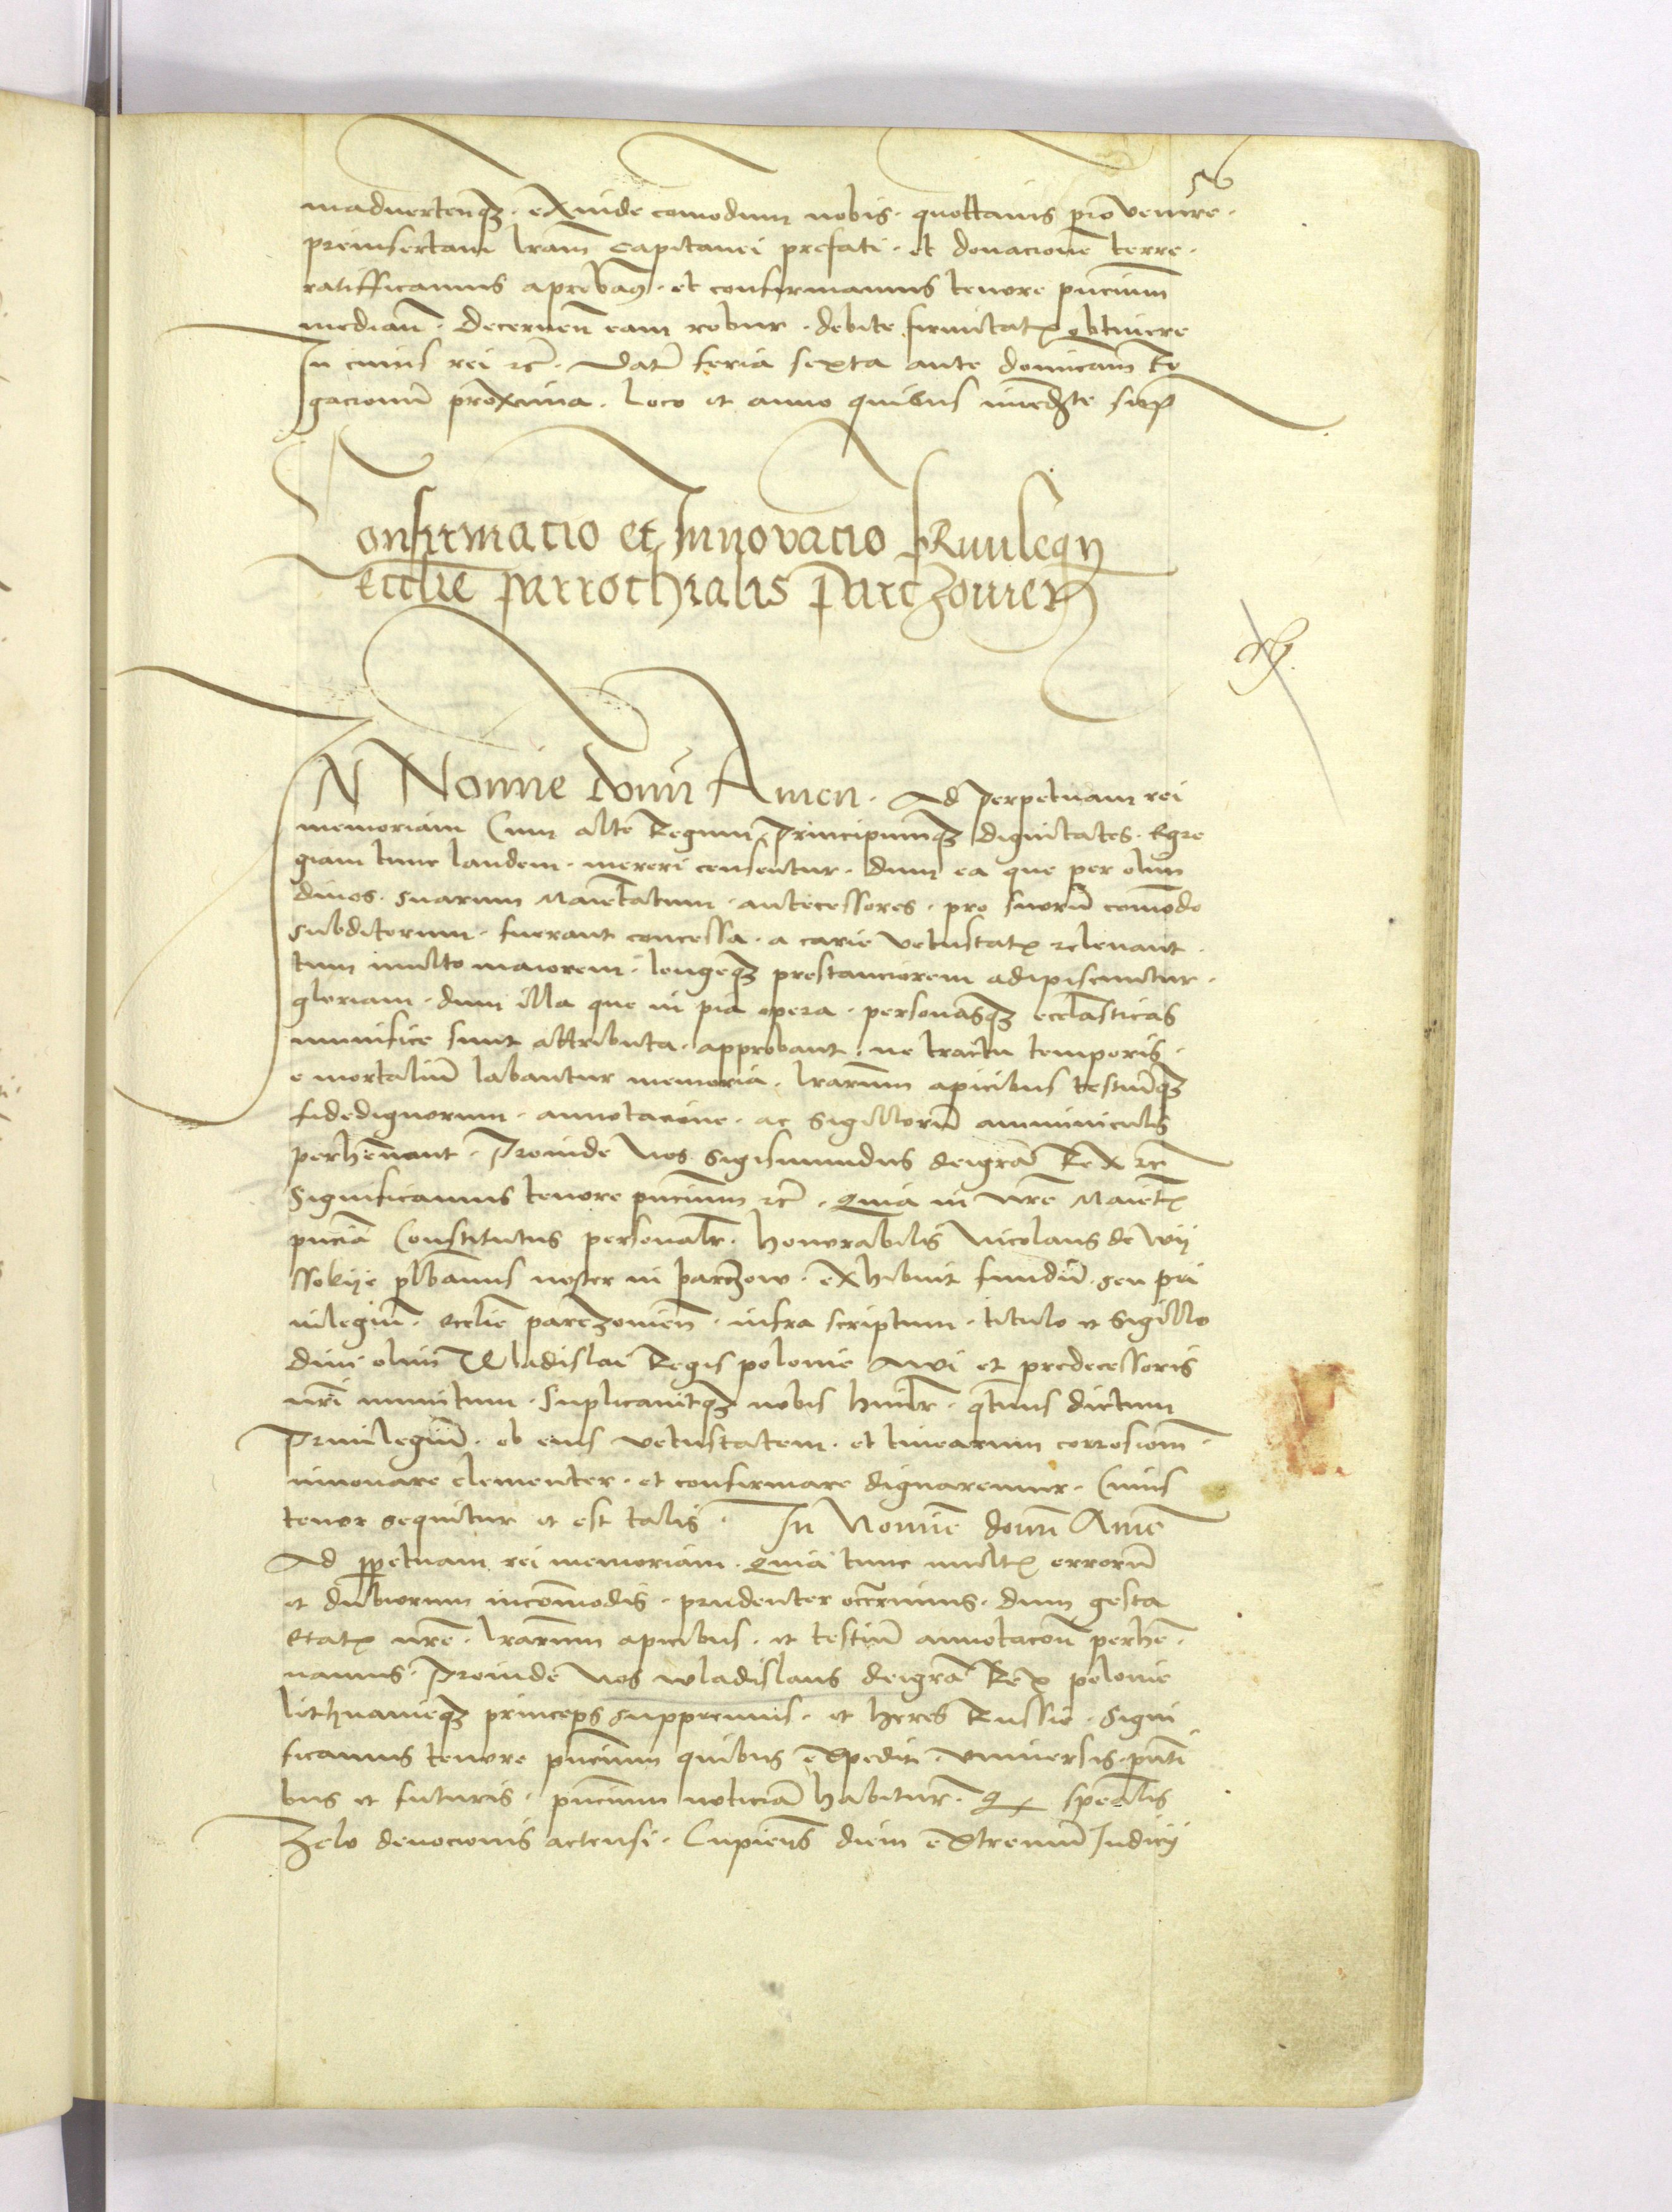 56
madvertenq3. exinde comodum nobis. quottanis provenire.
preinsertam lram capitanei prefati. et donacionem terre.
ratifficamus aprobamus. et confirmamus tenore pncium
median. decernen eam robur. debite firmitatis obtinere
In cuius rei etc. Dat feria sexta ante dominicam Ro
gacionum proxima. loco et anno quibus immediate sup
Confirmacio et Innovacio privilegij
ecclie parrochialis parczovien
IN Nomine domini Amen. Ad perpetuam rei
memoriam Cum alte Regum, Principumq3 dignitates. Egre
giam tunc laudem. mereri censentur. dum ea que per olim
divos. suarum Maiestatum. antecessores. pro suorum comodo
subditorum. fuerant concessa. a carie vetustatis relevant.
tum multo maiorem. longeq3 prestanciorem adipiscuntur.
gloriam. dum illa que in pia opera. personasq3 ecclasticas
munifice sunt attributa. approbant. ne tractu temporis.
e mortalium labantur memoria. lrarum apicibus testiumq3
fidedignorum. annotacione. ac sigillorum amminiculis
perhennant. Proinde Nos Sigismundus deigra Rex etc
Significamus tenore pncium etc. Quia in nre Maiestatis
pncia Constitutus personalr. honorabilis Nicolaus de Wij
ssokije plbanus noster in parczow. exhibuit fundum. seu pri
vilegium. ecclie parczovien. infra scriptum. titulo et sigillo
divi olim Wladislai Regis polonie Avi et predecessoris
nri munitum. suplicavitq3 nobis humilr. qtenus dictum
Privilegium. ob eius vetustatem. et tinearum corrosionem.
innovare clementer. et confirmare dignaremur. Cuius
tenor sequitur et est talis. In Nomine domini Amen
Ad ppetuam rei memoriam. Quia tunc multis errorum
et dubiorum incommodis. prudenter occurrimus. dum gesta
etatis nre. lrarum apicibus. et testium annotacone perhe.
nnamus. Proinde Nos wladislaus deigra Rex polonie
lithuanieq3 princeps suppremus. et heres Russie. Signi
ficamus tenore pncium quibus expedit. universis. pnti
bus et futuris. pncium noticiam habitur. Q spealis
Zelo devocionis accensi. Cupiens diem extremum Iudicij